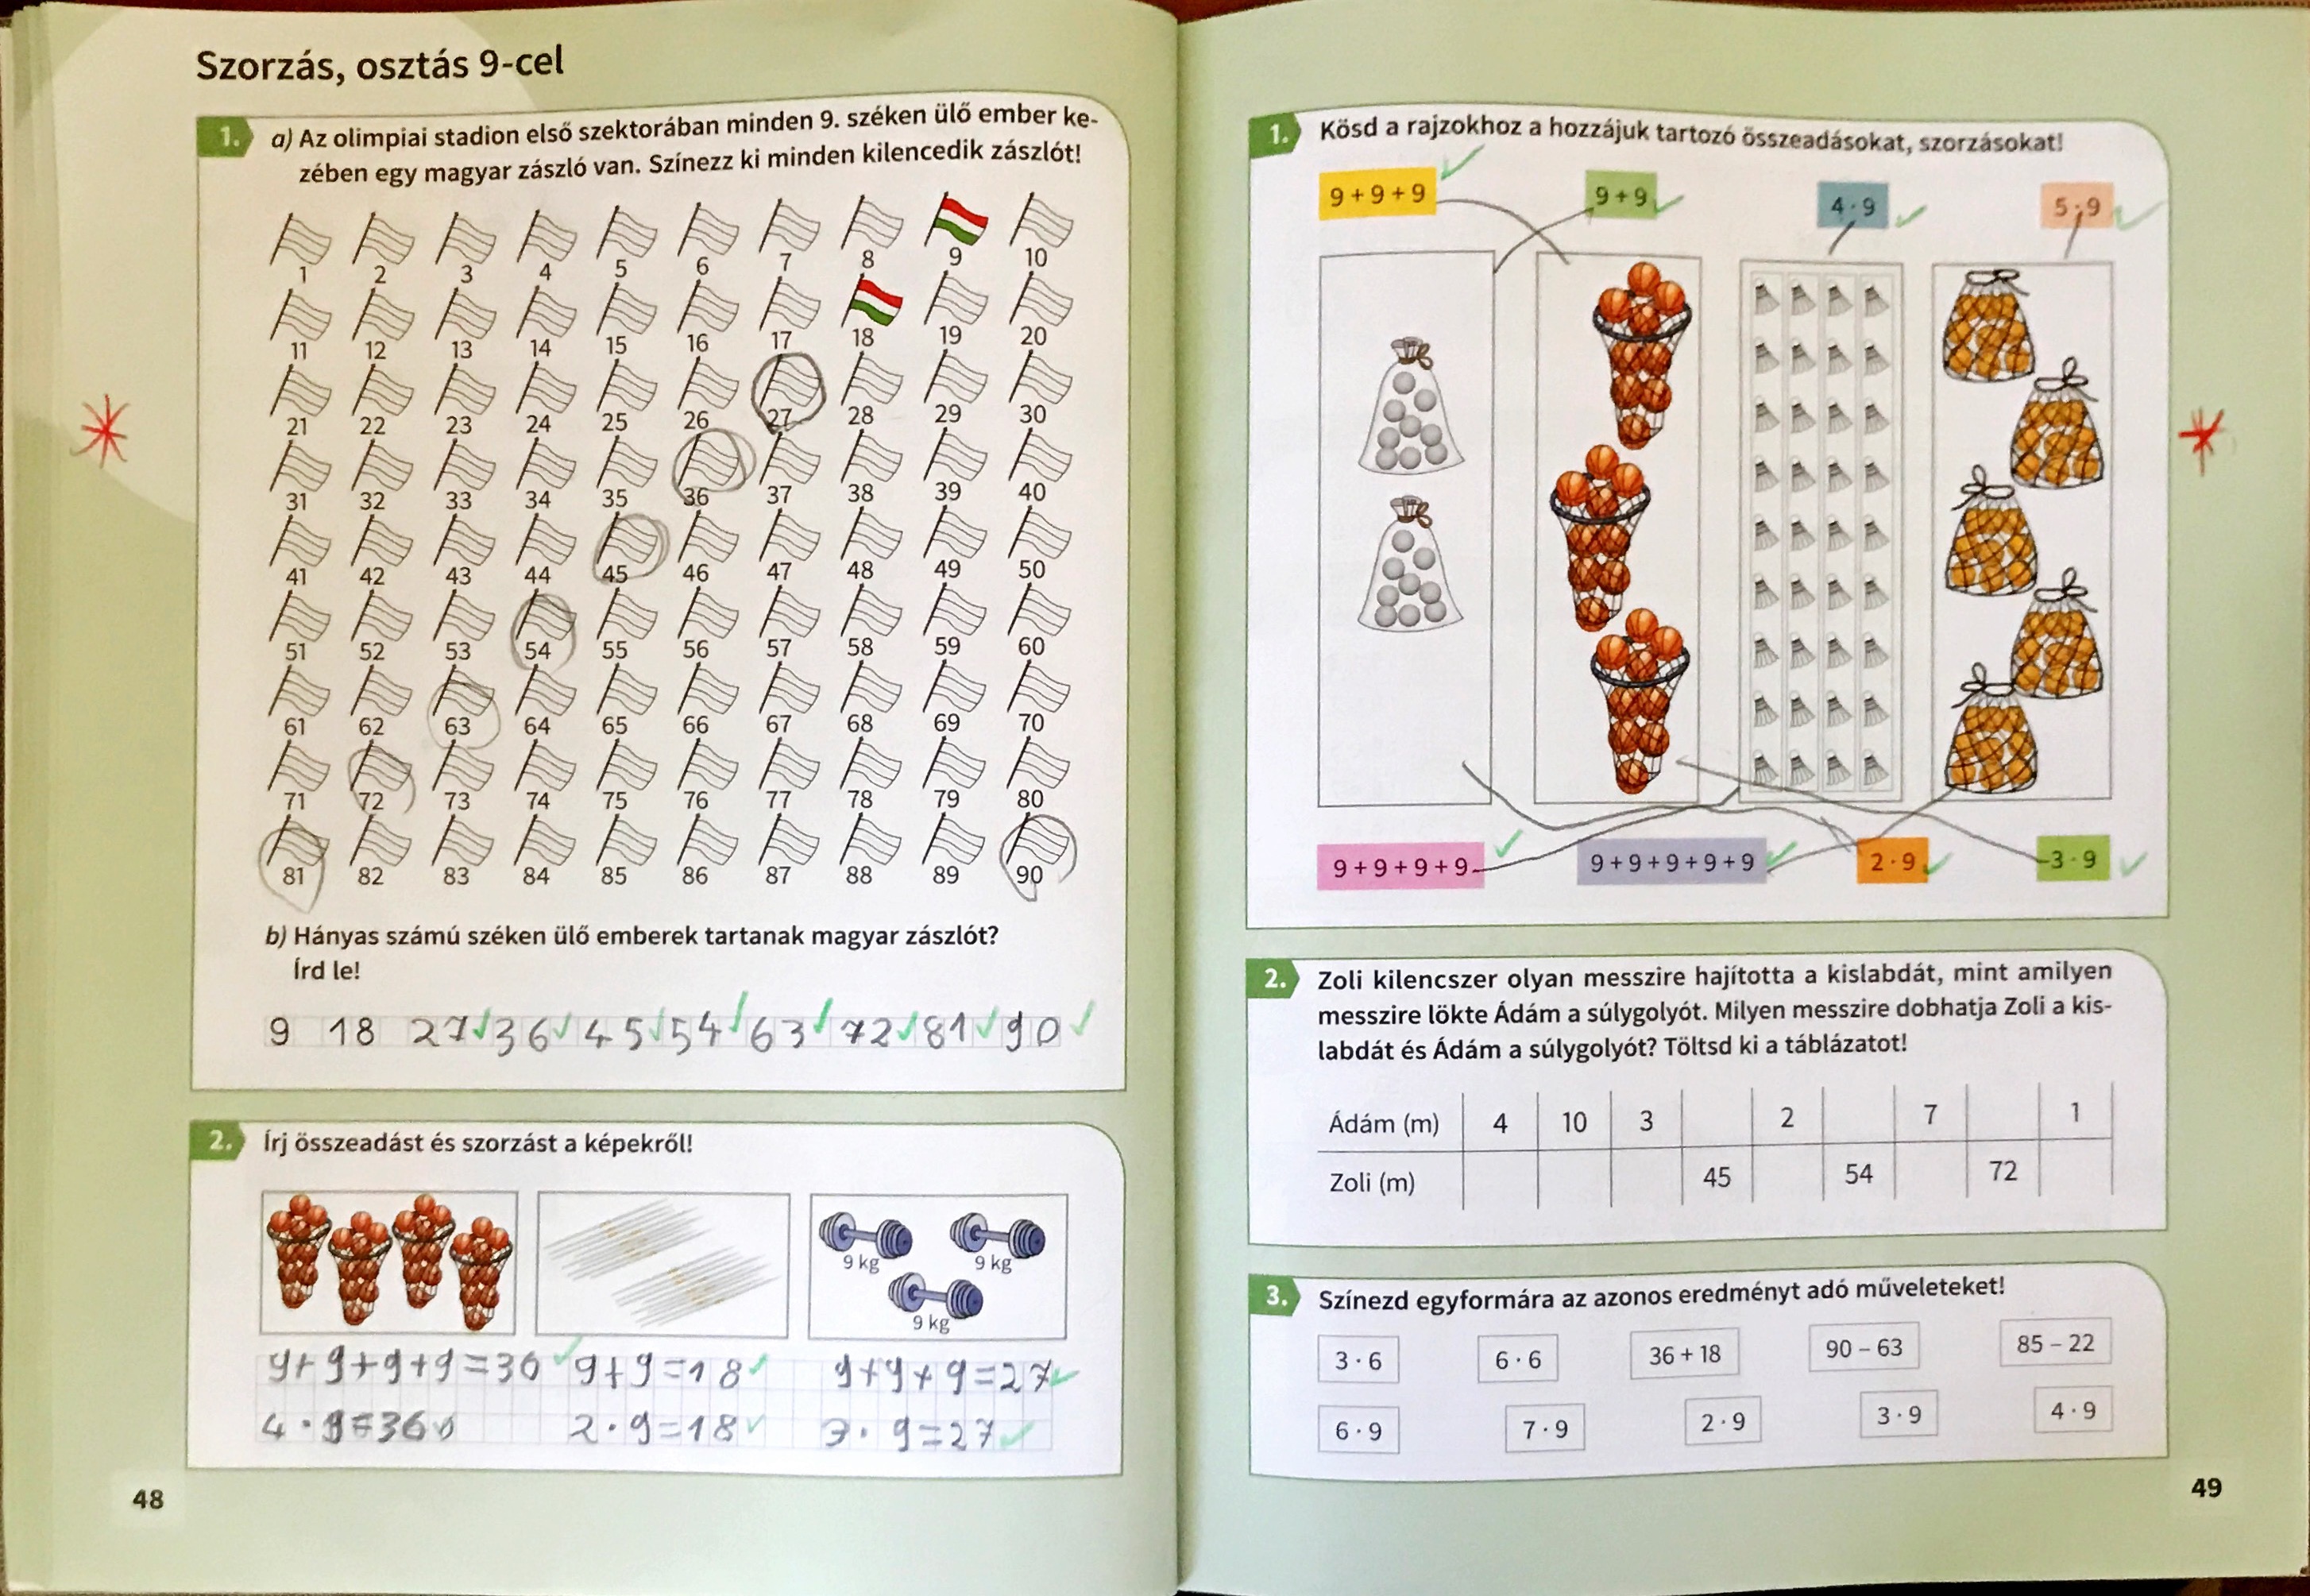 Szorzás, osztás 9-cel
1. a) Az olimpiai stadion első szektorában minden 9. széken ülő ember ke-
zében egy magyar zászló van. Színezz ki minden kilencedik zászlót!
1 2 3 4 5 6 7 8 9 10
11 12 13 14 15 16 17 18 19 20
21 22 23 24 25 26 27 28 29 30
31 32 33 34 35 36 37 38 39 40
41 42 43 44 45 46 47 48 49 50
51 52 53 54 55 56 57 58 59 60
61 62 63 64 65 66 67 68 69 70
71 72 73 74 75 76 77 78 79 80
81 82 83 84 85 86 87 88 89 90
b) Hányas számú széken ülő emberek tartanak magyar zászlót?
Írd le!
9 18 27 36 45 54 63 72 81 90
2. Írj összeadást és szorzást a képekről!
9 kg 9 kg
9 kg
9+9+9+9=36 9+9=18 9+9+9=27
4·9=36 2·9=18 3·9=27
48
1. Kösd a rajzokhoz a hozzájuk tartozó összeadásokat, szorzásokat!
9 + 9 + 9 9 + 9 4 · 9 5 · 9
9 + 9 + 9 + 9 9 + 9 + 9 + 9 + 9 2 · 9 3 · 9
2. Zoli kilencszer olyan messzire hajította a kislabdát, mint amilyen
messzire lökte Ádám a súlygolyót. Milyen messzire dobhatja Zoli a kis-
labdát és Ádám a súlygolyót? Töltsd ki a táblázatot!
Ádám (m) 4 10 3 2 7 1
Zoli (m) 45 54 72
3. Színezd egyformára az azonos eredményt adó műveleteket!
3 · 6 6 · 6 36 + 18 90 – 63 85 – 22
6 · 9 7 · 9 2 · 9 3 · 9 4 · 9
49